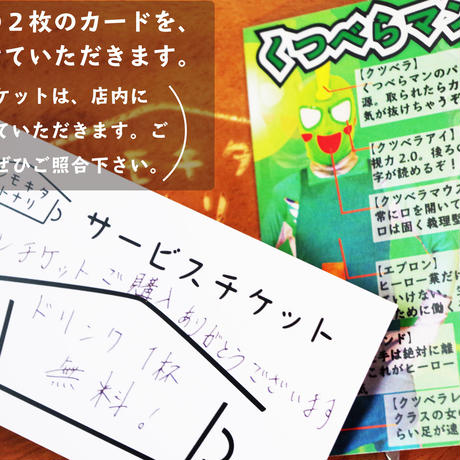 の２枚のカードを、
けていただきます。
ケットは、店内に
ていただきます。ご
ぜひご照合下さい。
くつべらマン
【クツベラ】
くつべらマンのパ
源。取られたら力
気が抜けちゃうぞ
【クツベラアイ】
視力 2.0。後ろの
字が読めるぞ！
【クツベラマウス
常に口を開いて
口は固く義理堅
【エプロン】
ヒーロー業だけ
ていけない。
ために働く
ンド】
手は絶対に離
これがヒーロー
【クツベラレ
クラスの女の
らい足が速
モキタ
トナリ
サービスチケット
チケットご購入ありがとうございます
ドリンク 1杯
無料！